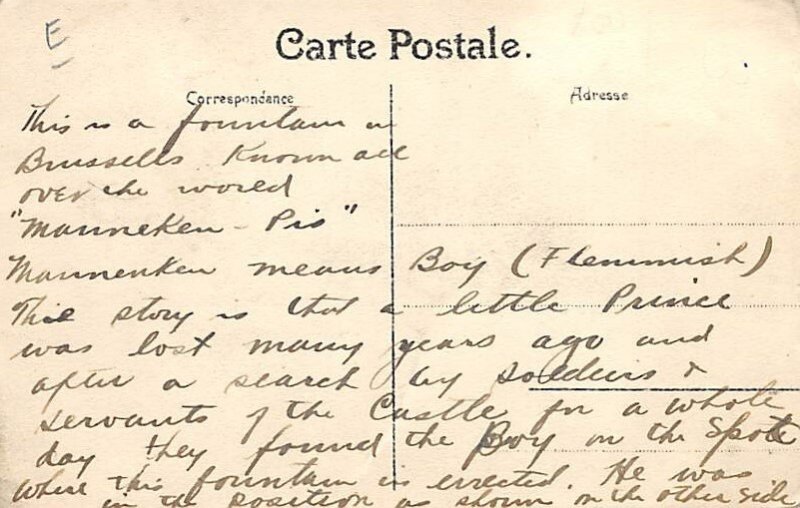 E
Carte Postale.
Correspondance
Adresse
This is a fountain in
Brussells Known all
over the world
"Manneken - Pis"
Mannenken means Boy (Flemmish)
The story is that a little Prince
was lost many years ago and
after a search by soldiers &
servants of the Castle for a whole
day they found the Boy on the Spot
where this fountain is errected. He was
in the position as shown on the other side